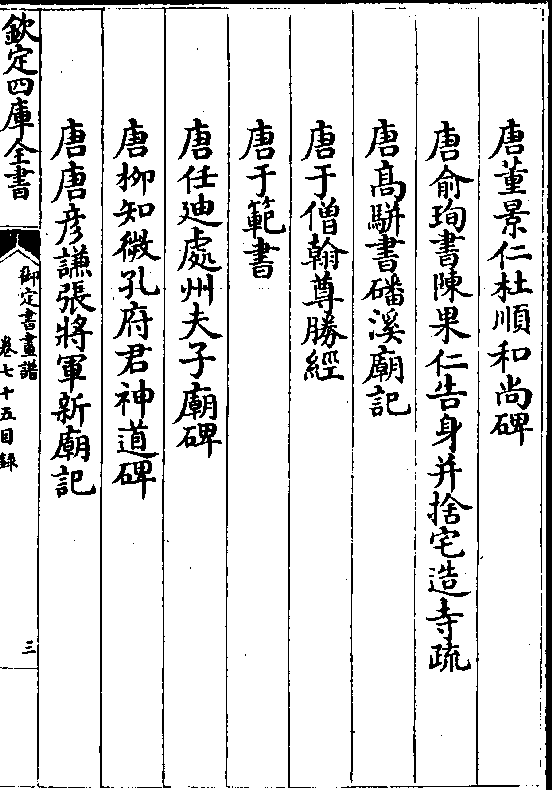 唐董景仁杜順和尚碑
唐俞珣書陳果仁告身并捨宅造寺疏
唐高駢書磻溪廟記
唐于僧翰尊勝經
唐于範書
唐任迪處州夫子廟碑
唐柳知微孔府君神道碑
唐唐彦謙張將軍新廟記
欽定四庫全書
御定書畫譜
卷七十五目錄
三